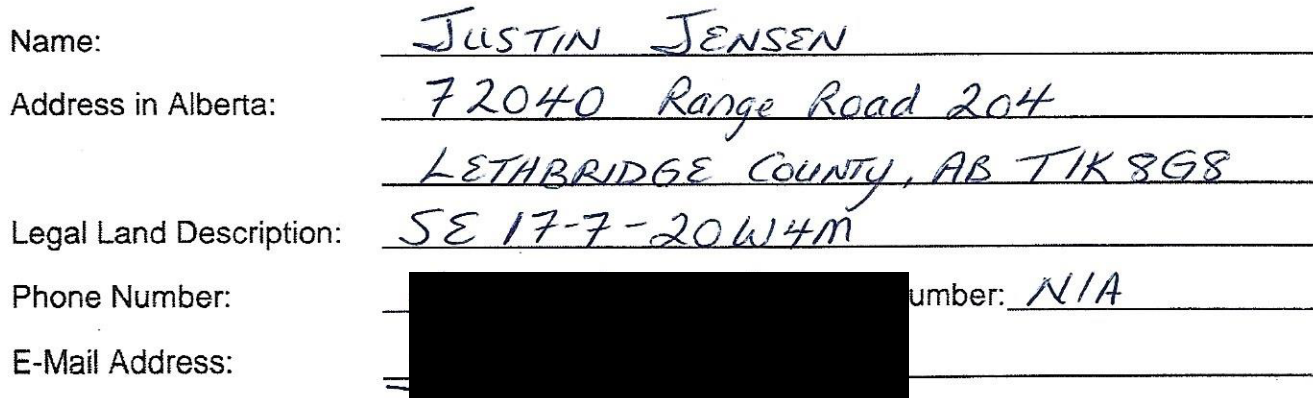 Name: JUSTIN JENSEN
Address in Alberta: 72040 Range Road 204
LETHBRIDGE COUNTY, AB T1K 8G8
Legal Land Description: SE 17-7-20W4M
Phone Number: umber: N/A
E-Mail Address: